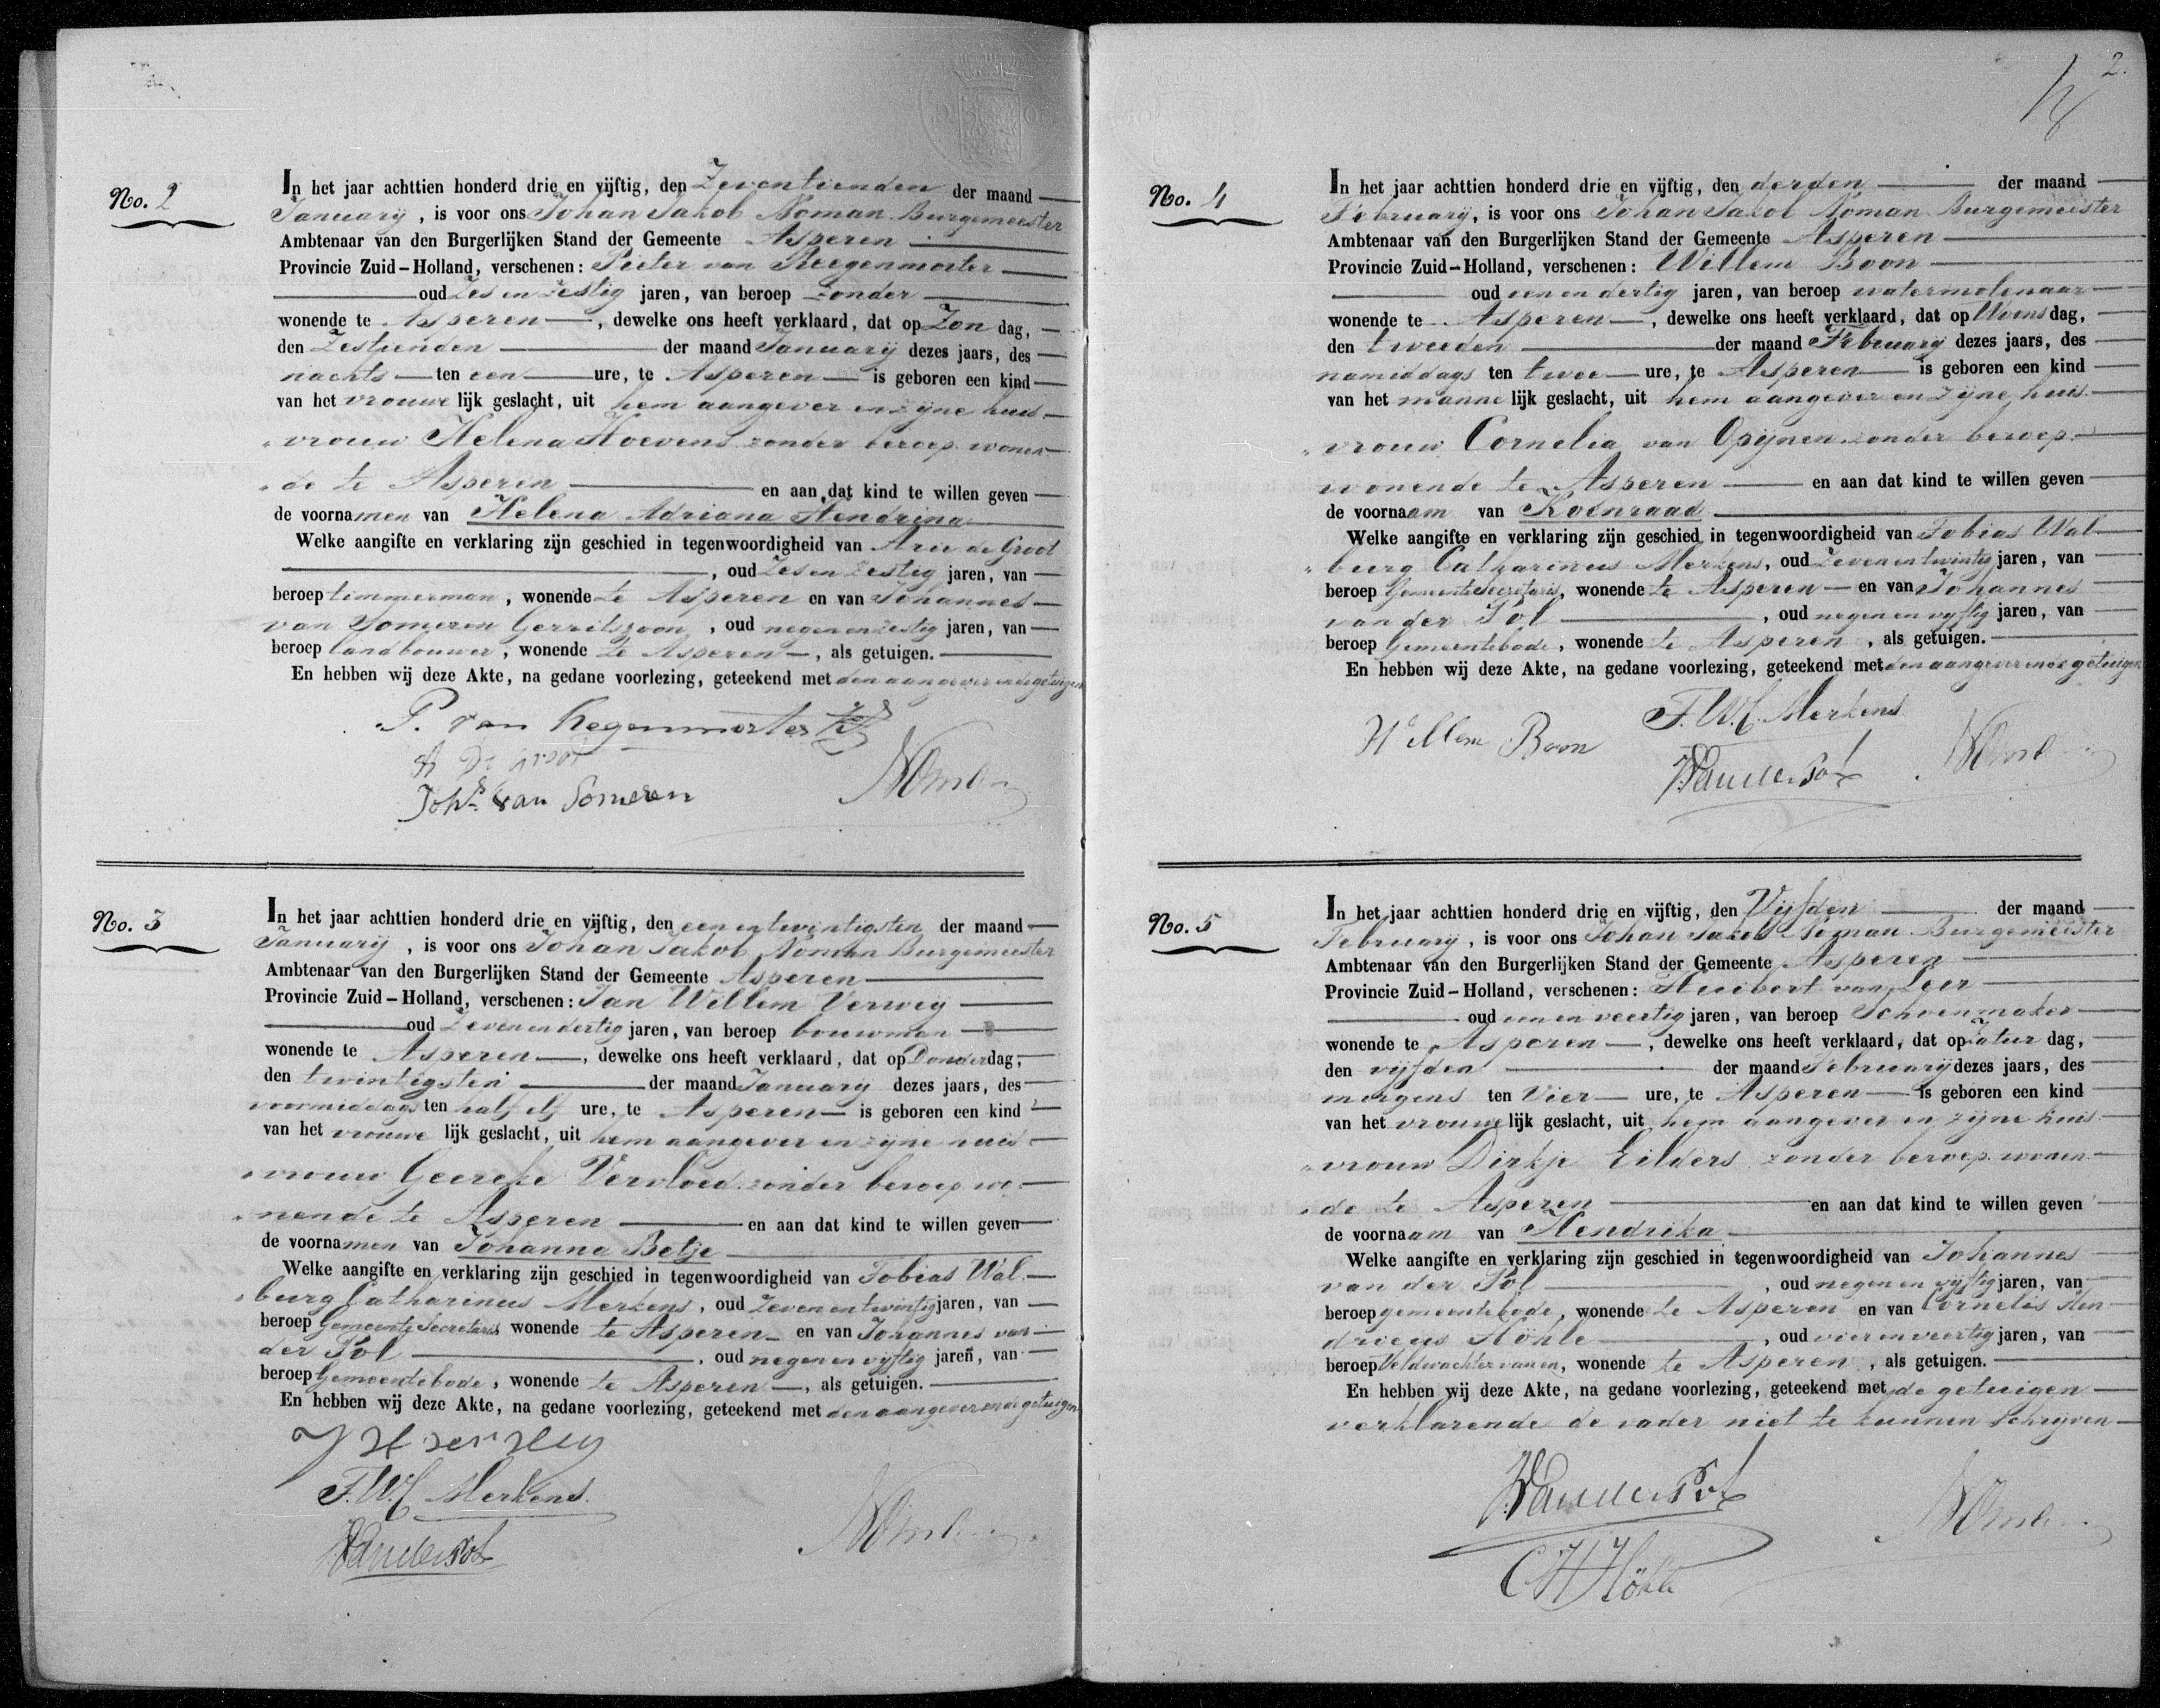 No. 2
In het jaar achttien honderd drie en vijftig, den Zeventienden der maand
January, is voor ons Johan Jakob Noman Burgemeester
Ambtenaar van den Burgerlijken Stand der Gemeente Asperen
Provincie Zuid-Holland, verschenen: Pieter van Reegenmorter
oud Zes en Zestig jaren, van beroep zonder
wonende te Asperen, dewelke ons heeft verklaard, dat op Zon dag,
den Zestienden der maand January dezes jaars, des
nachts ten een ure, te Asperen is geboren een kind
van het vrouwe lijk geslacht, uit hem aangever en zijne huis
vrouw Helena Hoevens zonder beroep wonen
de te Asperen en aan dat kind te willen geven
de voornamen van Helena Adriana Hendrina
Welke aangifte en verklaring zijn geschied in tegenwoordigheid van Arie de Groot
, oud Zes en Zestig jaren, van
beroep timmerman, wonende te Asperen en van Johannes
van Someren Gerritszoon, oud negen en zestig jaren, van
beroep landbouwer, wonende te Asperen, als getuigen.
En hebben wij deze Akte, na gedane voorlezing, geteekend met den aangever en de getuigen
P. van Regenmorter
A De groot
Johs van Someren
Noman
No. 3
In het jaar achttien honderd drie en vijftig, den een en twintigsten der maand
January, is voor ons Johan Jakob Noman Burgemeester
Ambtenaar van den Burgerlijken Stand der Gemeente Asperen
Provincie Zuid-Holland, verschenen: Jan Willem Verweg
oud Zeven en dertig jaren, van beroep bouwman
wonende te Asperen, dewelke ons heeft verklaard, dat op Donder dag,
den twintigsten der maand January dezes jaars, des
voormiddags ten half elf ure, te Asperen is geboren een kind
van het vrouwe lijk geslacht, uit hem aangever en zijne huis
vrouw Geereke Vervloed zonder beroep wo
nende te Asperen en aan dat kind te willen geven
de voornamen van Johanna Betje
Welke aangifte en verklaring zijn geschied in tegenwoordigheid van Tobias Wal
burg Catharinus Merkens, oud Zeven en twintig jaren, van
beroep Gemeente Secretaris wonende te Asperen en van Johannes van
der Pol, oud negen en vijftig jaren, van
beroep Gemeentebode, wonende te Asperen, als getuigen.
En hebben wij deze Akte, na gedane voorlezing, geteekend met den aangever en de getuigen
J W verweg
T.W.C. Merkens.
J. van der Pol
Noman
2.
No. 4
In het jaar achttien honderd drie en vijftig, den derden der maand
February, is voor ons Johan Jakob Noman Burgemeester
Ambtenaar van den Burgerlijken Stand der Gemeente Asperen
Provincie Zuid-Holland, verschenen: Willem Boon
oud een en dertig jaren, van beroep watermolenaar
wonende te Asperen, dewelke ons heeft verklaard, dat op Woens dag,
den tweeden der maand February dezes jaars, des
namiddags ten twee ure, te Asperen is geboren een kind
van het manne lijk geslacht, uit hem aangever en zijne huis
vrouw Cornelia van Opijnen zonder beroep
wonende te Asperen en aan dat kind te willen geven
de voornaam van Koenraad
Welke aangifte en verklaring zijn geschied in tegenwoordigheid van Tobias Wal
burg Catharinus Merkens, oud Zeven en twintig jaren, van
beroep Gemeente Secretaris, wonende te Asperen en van Johannes
van der Pol, oud negen en vyftig jaren, van
beroep Gemeentebode, wonende te Asperen, als getuigen.
En hebben wij deze Akte, na gedane voorlezing, geteekend met den aangever en de getuigen
Willem Boon
T.W.C. Merkens
J. van der Pol
Noman
No. 5
In het jaar achttien honderd drie en vijftig, den Vijfden der maand
February, is voor ons Johan Jakob Noman Burgemeister
Ambtenaar van den Burgerlijken Stand der Gemeente Asperen
Provincie Zuid-Holland, verschenen: Huibert van Leer
oud een en veertig jaren, van beroep Schoenmaker
wonende te Asperen, dewelke ons heeft verklaard, dat op Zatur dag,
den vijfden der maand February dezes jaars, des
morgens ten Vier ure, te Asperen is geboren een kind
van het vrouwe lijk geslacht, uit hem aangever en zijne huis
vrouw Dirkje Eilders zonder beroep wonen
de te Asperen en aan dat kind te willen geven
de voornaam van Hendrika
Welke aangifte en verklaring zijn geschied in tegenwoordigheid van Johannes
van der Pol, oud negen en vijftig jaren, van
beroep gemeentebode, wonende te Asperen en van Cornelis Hen
dricus Höhle, oud vier en veertig jaren, van
beroep Veldwachter van en, wonende te Asperen, als getuigen.
En hebben wij deze Akte, na gedane voorlezing, geteekend met de getuigen
verklarende de vader niet te kunnen schrijven
J. van der Pol
C H Höhle
Noman